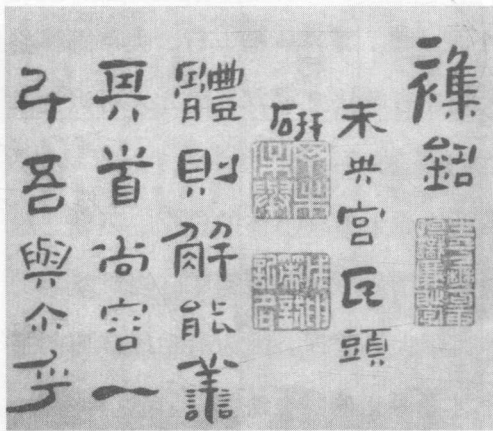 襍銘
未央宮瓦頭
研
體則解能譱
其首尚容一
斗吾與尒乎